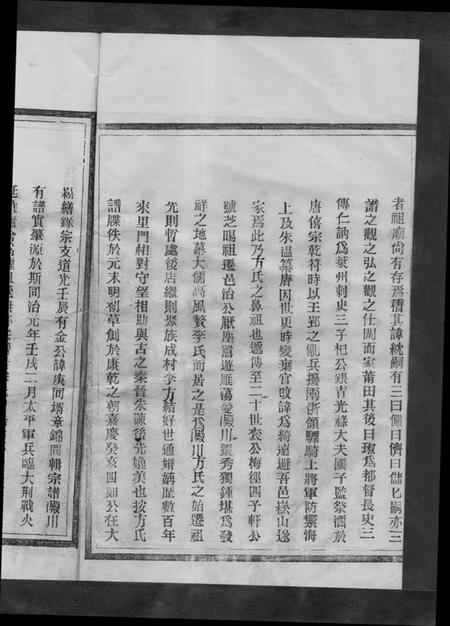 者祖廟尚有存焉稽其諱紞嗣有三曰儼曰儕曰儲匕嗣亦三
諧之觀之弘之觀之仕閩而家莆田其後曰琡為都督長史三
傳仁訥為萊州刺史三子杞公銀青光祿大夫國子監祭酒於
唐僖宗乾符時以王郢之亂兵擾兩浙領驃騎上將軍防禦海
上及朱溫篡唐因世更時變棄官改諱為綺遠避吾邑崧山遂
家焉此乃方氏之鼻祖也遞傳至二十世衣公梅徑四子軒公
號芝暘祖遷邑治公厭座囂遊雁蕩愛殿川毓秀獨鍾堪為發
祥之地慕大儒高風贅李氏而居之是為殿川方氏之始遷祖
先則暫處後店繼則聚族成村李方結好世通婚媾歷數百年
來里門相對守望相助與古之秦晉朱陳後先媲美也按方氏
譜牒佚於元末明初草創於康乾之朝嘉慶癸亥四如公在大
崧繕錄宗支道光壬辰有金公諱庚同壻章錦同輯宗譜殿川
有譜實肇源於斯同治元年壬戌二月太平軍兵臨大荆戰火